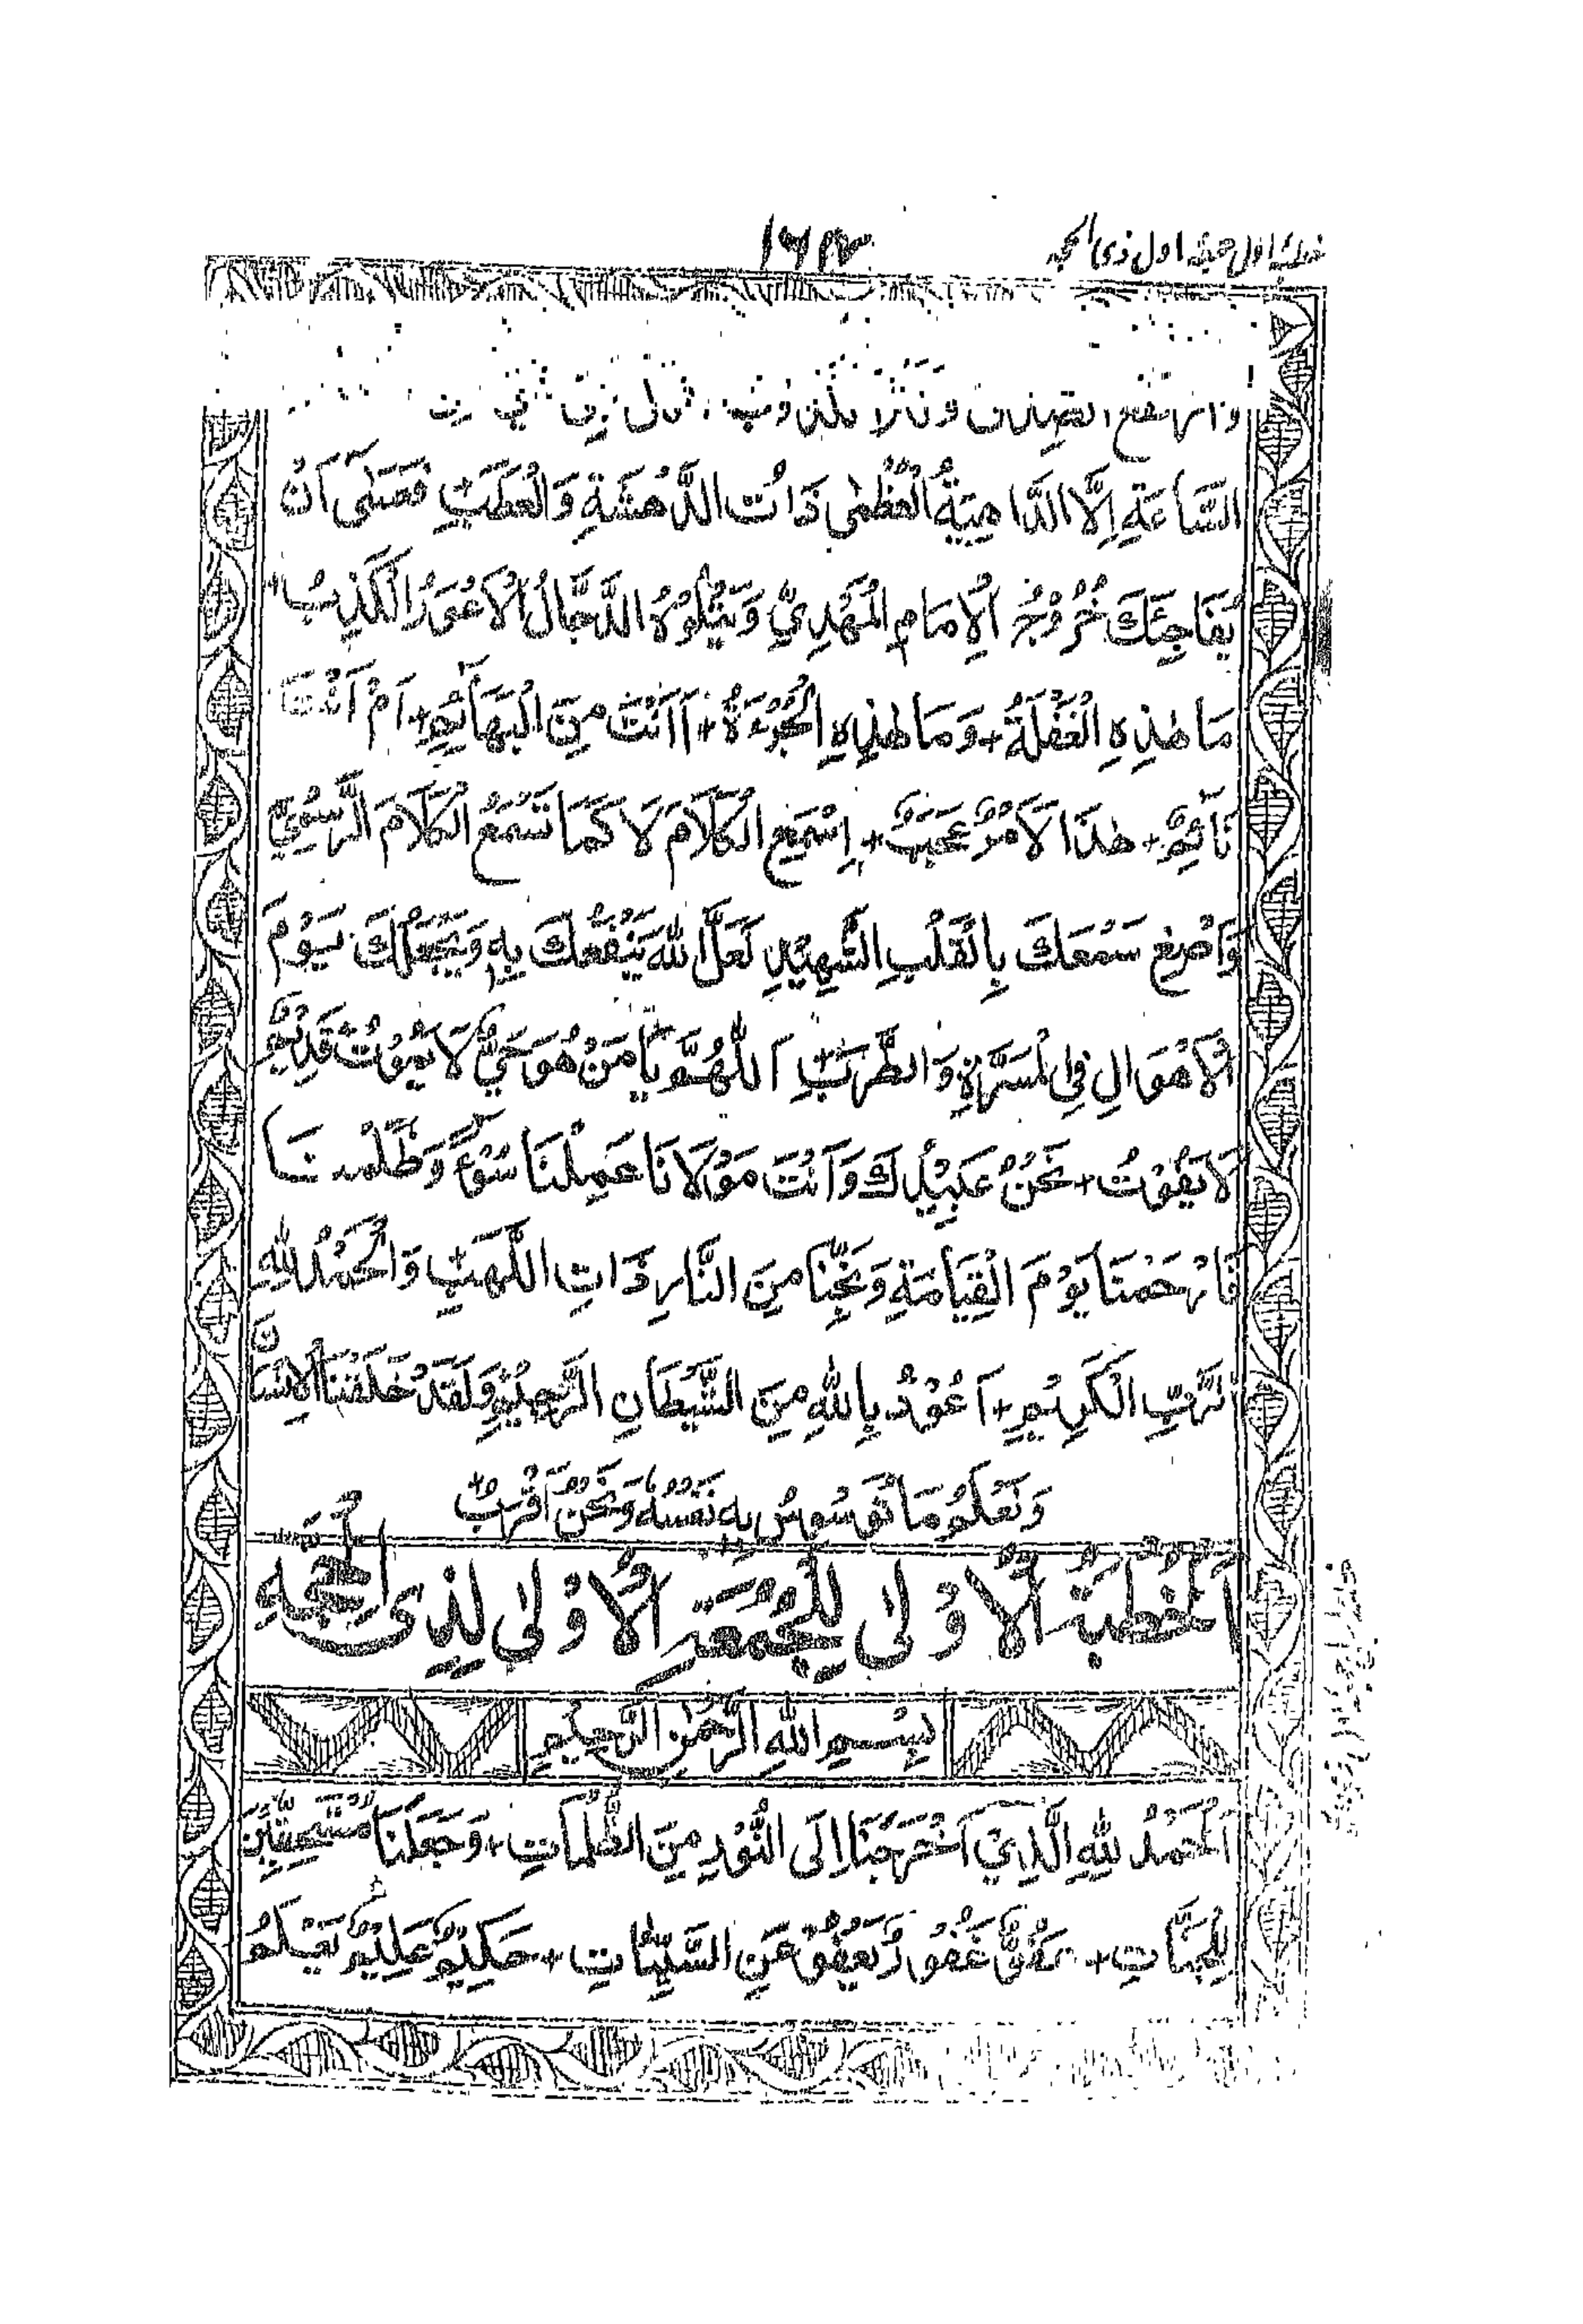 خطبۂ اول جمعہ اول ذی الحجہ
وارتفع
السَّاعَةِ اِلَّا الدَّاهِيَةُ الْعُظْمٰى ذَاتُ الدَّهْشَةِ وَالْعَطَبِ فَعَسٰى اَنْ
يُفَاجِئَكَ خُرُوْجُ الْاِمَامِ الْمَهْدِيِّ وَيَتْلُوْهُ الدَّجَّالُ الْاَعْوَرُ الْكَذِبُ
مَا هٰذِهِ الْغَفْلَةُ + وَمَا هٰذِهِ الْجُرْءَةُ + اَاَنْتَ مِنَ الْبَهَائِمِ + اَمْ اَنْتَ
نَائِمٌ + هٰذَا لَاَمْرٌ عَجَبٌ + اِسْتَمِعِ الْكَلَامَ لَا كَمَا تَسْمَعُ الْكَلَامَ الرَّسْمِيَّ
وَاصْرِغْ سَمْعَكَ بِالْقَلْبِ الشَّهِيْدِ لَعَلَّ اللهَ يَنْفَعُكَ بِهٖ وَيَجْعَلُكَ يَوْمَ
الْاَهْوَالِ فِي الْمَسَرَّةِ وَالطَّرَبِ اَللّٰهُمَّ يَا مَنْ هُوَ حَيٌّ لَا يَمُوْتُ قَدِيْمٌ
لَا يَفُوْتُ + نَحْنُ عَبِيْدُكَ وَاَنْتَ مَوْلَانَا عَمِلْنَا سُوْءً وَظَلَمْنَا
فَارْحَمْنَا يَوْمَ الْقِيَامَةِ وَنَجِّنَا مِنَ النَّارِ ذَاتِ اللَّهَبِ وَالْحَمْدُ لِلّٰهِ
الرَّبِّ الْكَرِيْمِ + اَعُوْذُ بِاللهِ مِنَ الشَّيْطَانِ الرَّجِيْمِ وَلَقَدْ خَلَقْنَا الْاِنْسَانَ
وَنَعْلَمُ مَا تُوَسْوِسُ بِهٖ نَفْسُهٗ وَنَحْنُ اَقْرَبُ
اَلْخُطْبَةُ الْاُوْلٰى لِلْجُمُعَةِ الْاُوْلٰى لِذِى الْحِجَّةِ
بِسْمِ اللهِ الرَّحْمٰنِ الرَّحِيْمِ
اَلْحَمْدُ لِلّٰهِ الَّذِيْ اَخْرَجَنَا اِلَى النُّوْرِ مِنَ الظُّلُمَاتِ + وَجَعَلَنَا مُسْتَحِقِّيْنَ
لِلْجَنَّاتِ + عَفُوٌّ غَفُوْرٌ يَعْفُوْ عَنِ السَّيِّئَاتِ + حَكِيْمٌ عَلِيْمٌ يَعْلَمُ